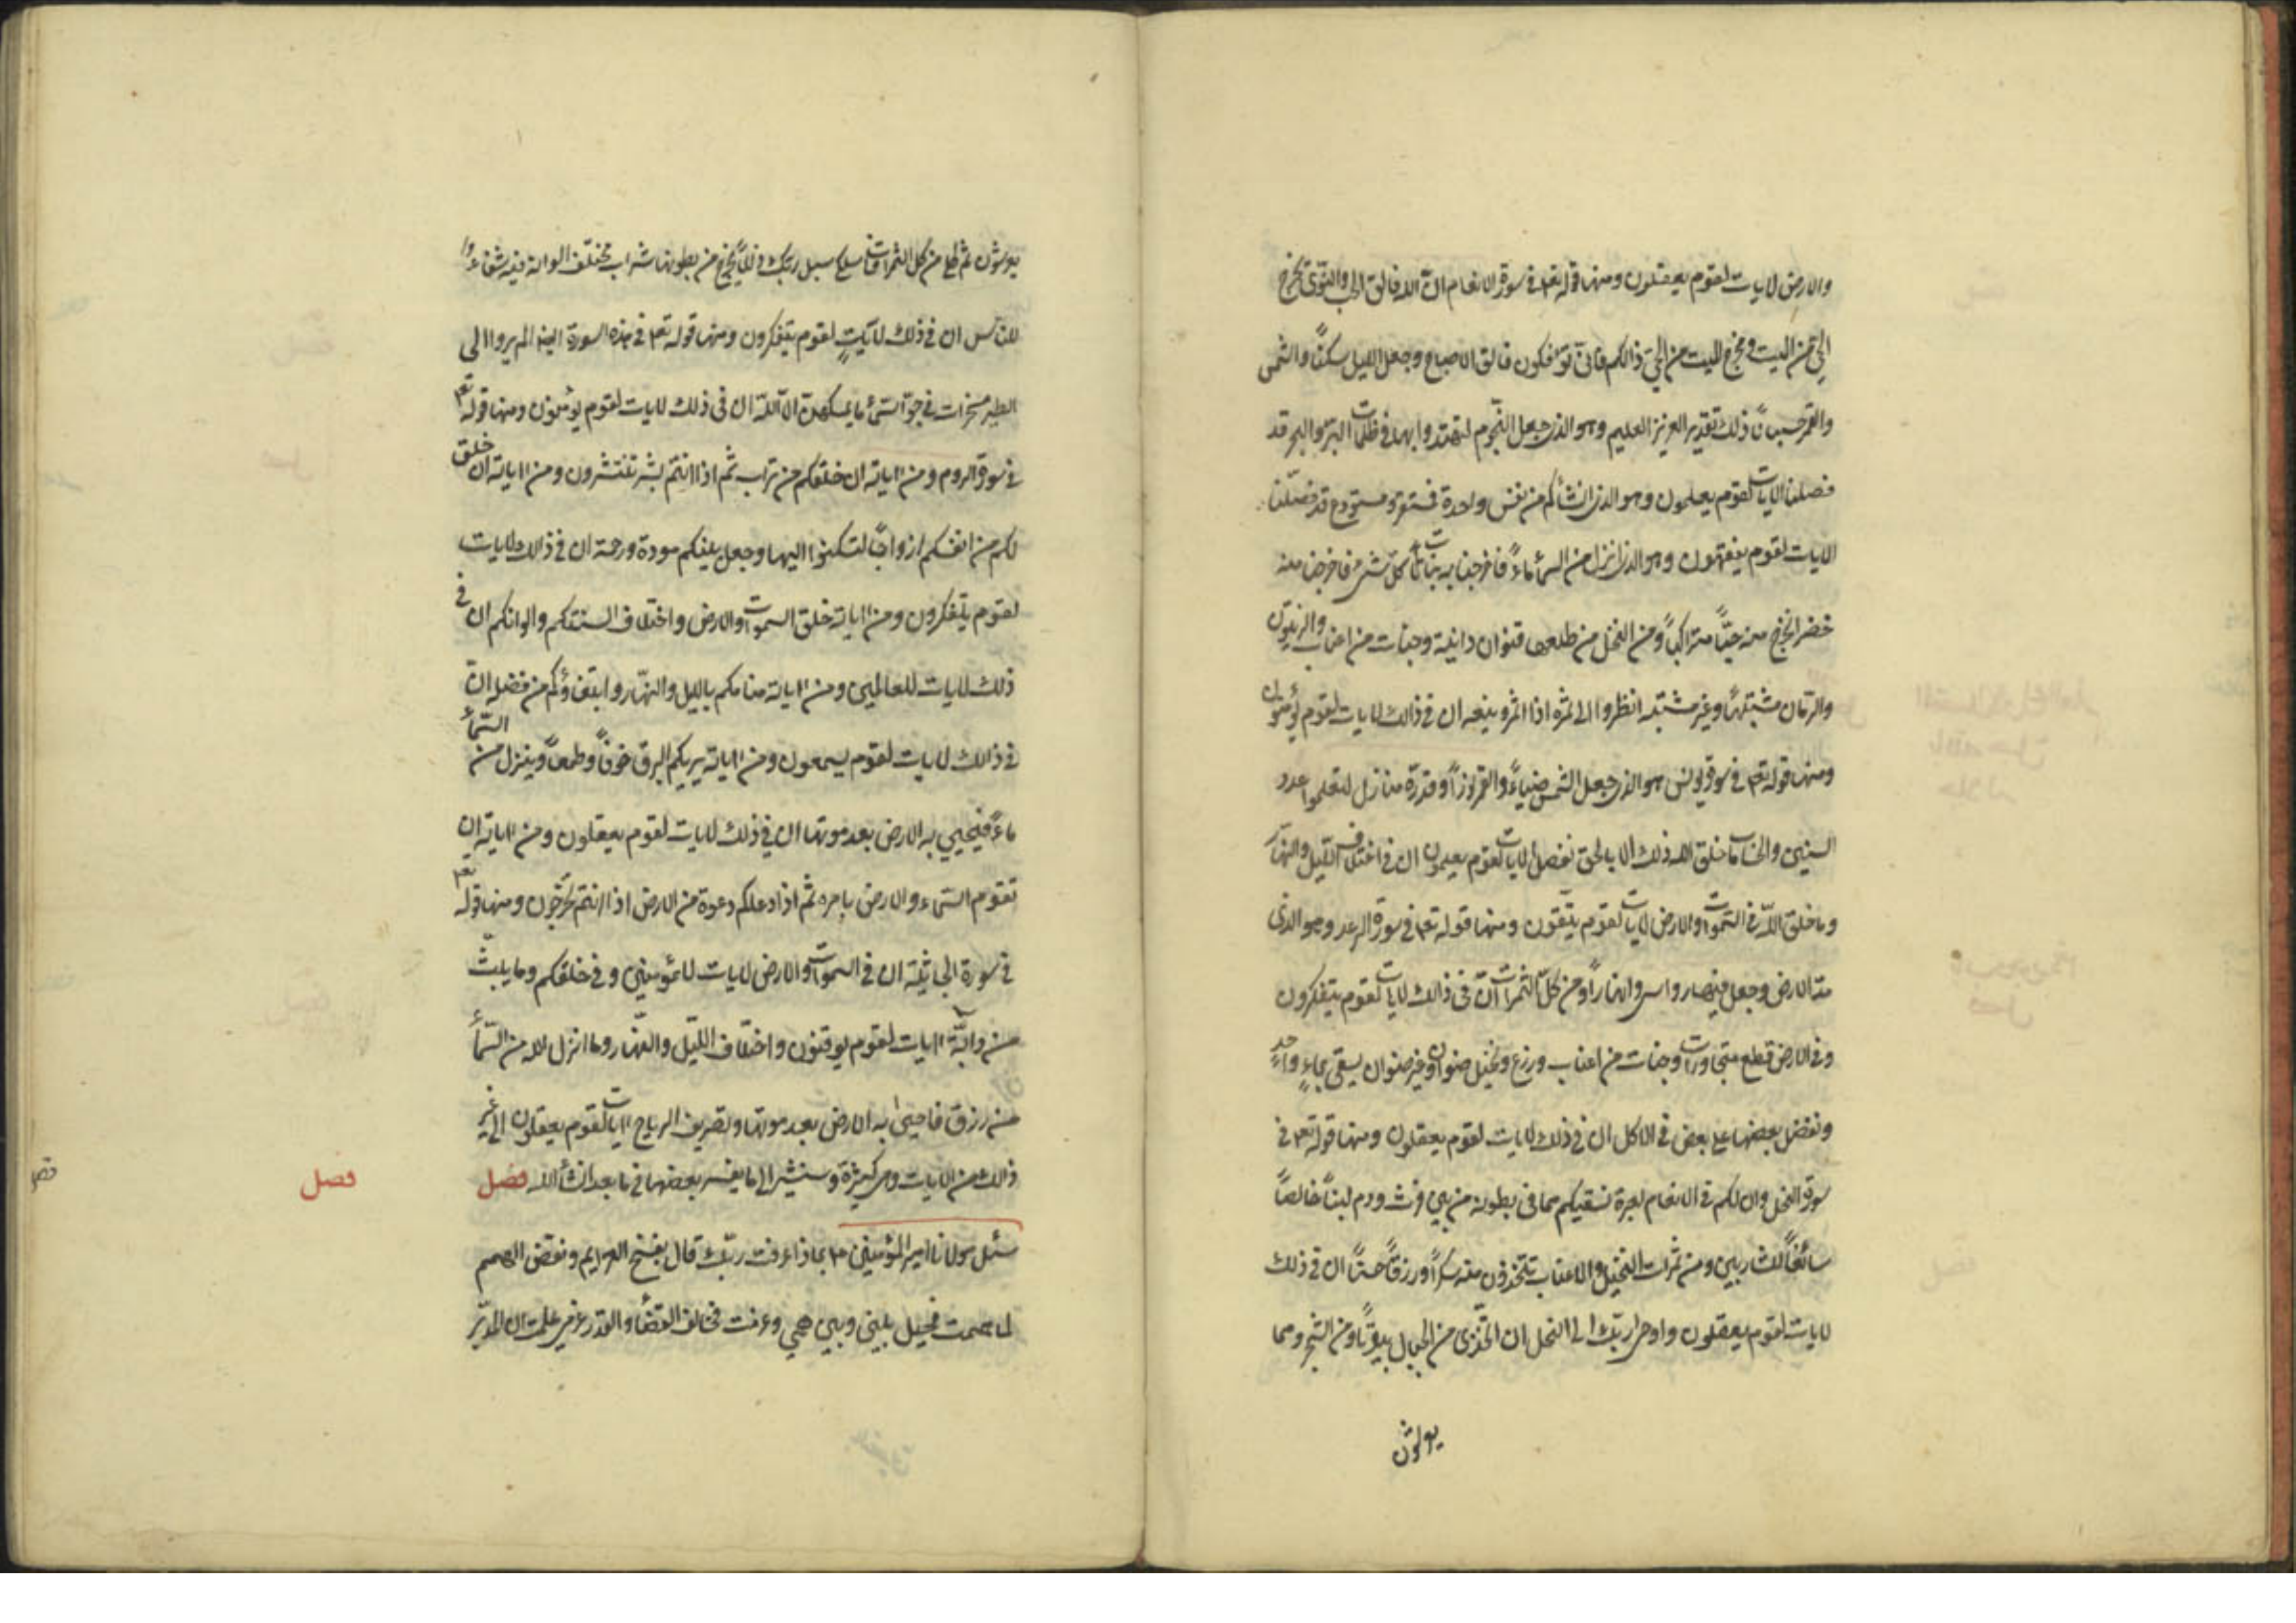 والارض لايات لقوم يعقلون ومنها قوله تعه في سورة الانعام ان الله فالق الحب والنوى يخرج
الحي من الميت ومخرج الميت من الحي ذالكم فانى توافكون فالق الاصباح وجعل الليل سكنًا والشمس
والقمر حسبانًا ذلك تقدير العزيز العليم وهو الذي جعل النجوم لتهتدوا بها في ظلمات البر والبحر قد
فصلنا الايات لقوم يعلمون وهو الذي انشأكم من نفس واحدة فمستقر ومستودع قد فصّلنا
الايات لقوم يفقهون وهو الذي انزل من السمأ ماءً فاخرجنا به نبات كل شيء فاخرجنا منه
خضرا نخرج منه حبًّا متراكبًا ومن النخل من طلعها قنوان دانية وجنات من اعناب والزيتون
والرّمان مشتبهًا وغير متشبه انظروا الى ثمره اذا اثمر وينعه ان في ذالك لايات لقوم يؤمنون
ومنها قوله تعه في سورة يونس هو الذي جعل الشمس ضياءً والقمر نورًا وقدّره منازل لتعلموا عدد
السنين والحساب ما خلق الله ذلك الا بالحق نفصل الايات لقوم يعلمون ان في اختلاف الليل والنهار
وما خلق اللّه في السّموات والارض لايات لقوم يتّقون ومنها قوله تعه في سورة الرعد وهو الذي
مدّ الارض وجعل فيها رواسي وانهارًا ومن كلّ الثمرات انّ في ذالك لايات لقوم يتفكرون
وفي الارض قطع متجاورات وجنات من اعناب وزرع ونخيل صنوان وغير صنوان يسقى بماءٍ واحدٍ
ونفضل بعضها على بعض في الاكل ان في ذلك لايات لقوم يعقلون ومنها قوله تعه في
سورة النحل وان لكم في الانعام لعبرة نسقيكم مما في بطونه من بين فرث ودم لبنًا خالصًا
سائغًا للشاربين ومن ثمرات النخيل والاعناب تتخذون منه سكرًا ورزقًا حسنًا ان في ذلك
لايات لقوم يعقلون واوحى ربّك الى النحل ان اتخذي من الجبال بيوتًا ومن الشجر ومما
يعرشون
يعرشون ثم كلي من كل الثمرات فاسلكي سبل ربّك ذللًا يخرج من بطونها شراب مختلف الوانه فيه شفاء
للناس ان في ذلك لآيتٍ لقوم يتفكرون ومنها قوله تعه في هذه السورة ايضا الم يروا الى
الطير مسخرات في جوّ السّمأ ما يمسكهنّ الا اللّه ان في ذلك لايات لقوم يؤمنون ومنها قوله تعه
في سورة الروم ومن اياته ان خلقكم من تراب ثم اذا انتم بشر تنتشرون ومن اياته ان خلق
لكم من انفسكم ازواجًا لتسكنوا اليها وجعل بينكم مودة ورحمة ان في ذالك لايات
لقوم يتفكرون ومن اياته خلق السموات والارض واختلاف السنتكم والوانكم ان في
ذلك لايات للعالمين ومن اياته منامكم بالليل والنّهار وابتغاؤكم من فضله انّ
في ذالك لايات لقوم يسمعون ومن اياته يريكم البرق خوفًا وطمعًا وينزل من السّمأ
ماءً فيحيي به الارض بعد موتها ان في ذلك لايات لقوم يعقلون ومن اياته ان
تقوم السّماء والارض بامره ثم اذا دعاكم دعوة من الارض اذا انتم تخرجون ومنها قوله تعه
في سورة الجاثية ان في السموات والارض لايات للمؤمنين وفي خلقكم وما يبثّ
من دابّة ايات لقوم يوقنون واختلاف الليّل والنّهار وما انزل الله من السّمأ
من رزق فاحيى به الارض بعد موتها وتصريف الرياح ايات لقوم يعقلون الى غير
ذالك من الايات وهي كثيرة وسنشير الى ما يفسر بعضها في ما بعد انشأ الله فصل
فصل
سئل مولانا امير المؤمنين عه بماذا عرفت ربّك قال بفسخ العزايم ونقض الهمم
لما هممت فحيل بيني وبين همي وعرفت فخالف القضأ والقدر عزمي علمت ان المدبّر